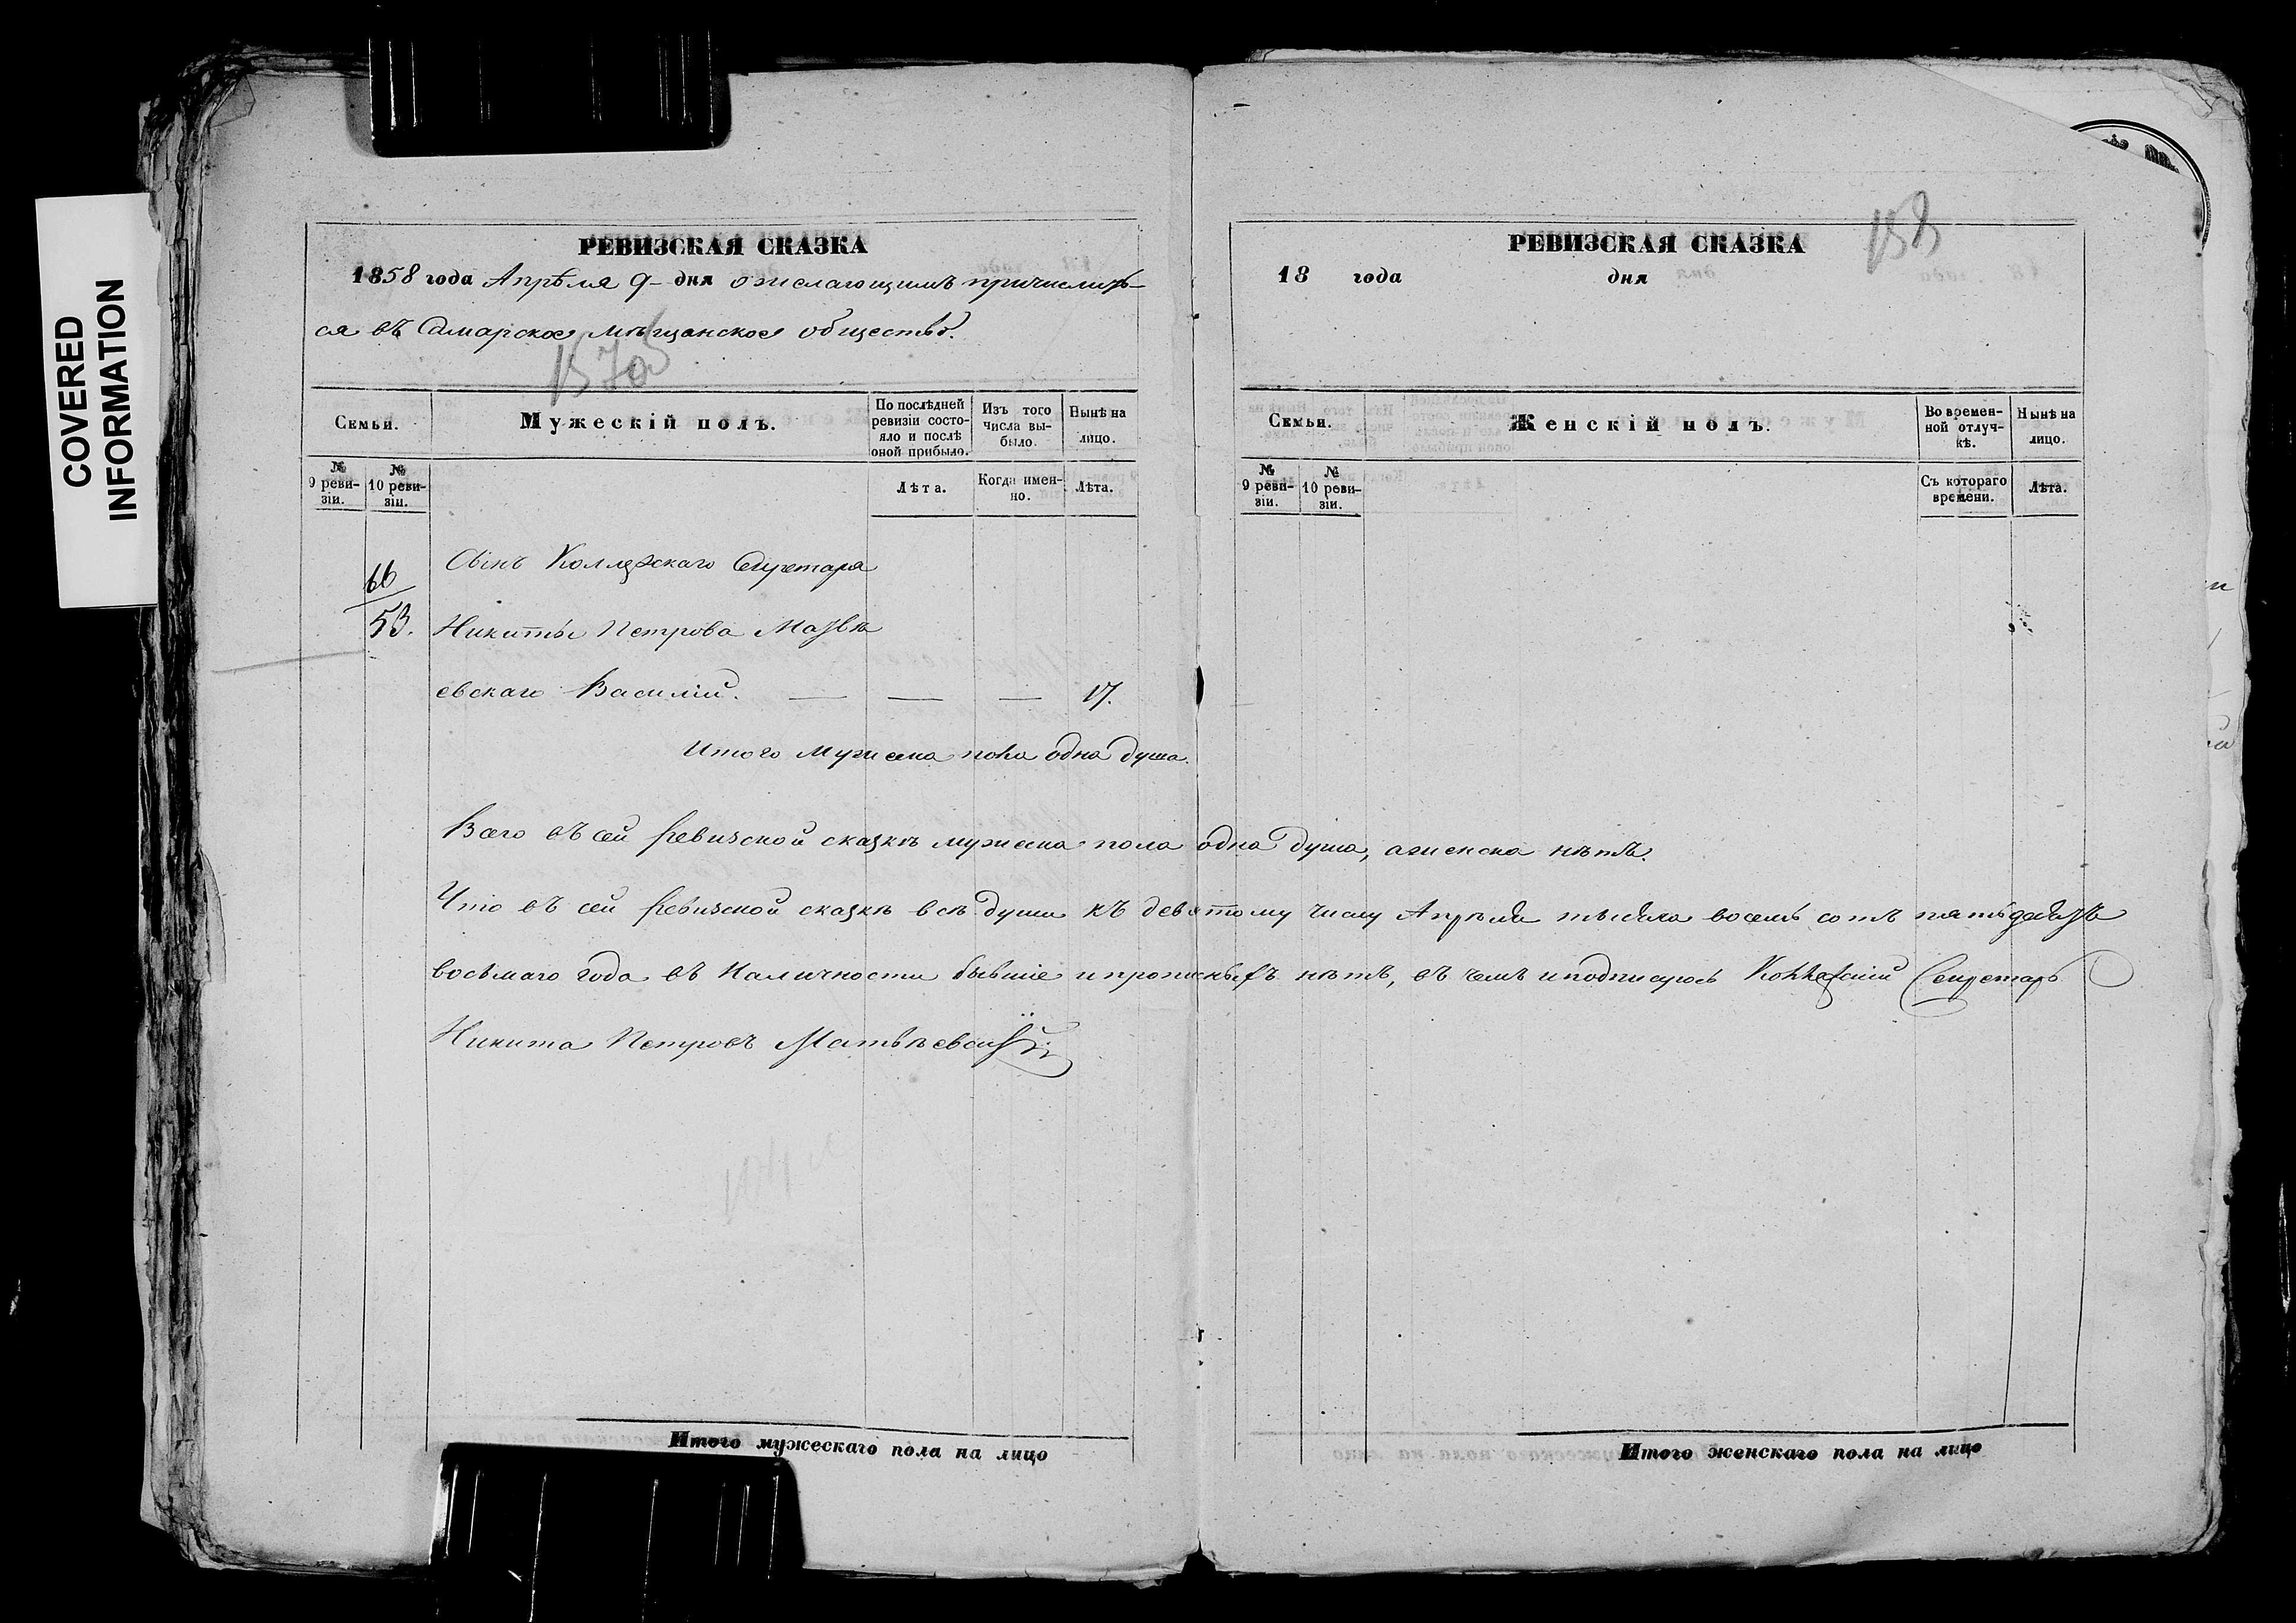 COVERED
INFORMATION
РЕВИЗСКАЯ СКАЗКА
1858 года Апрѣля 9 дня о желающимъ причислить-
ся въ Самарское мѣщанское общество.
Семьи.
Мужескій полъ.
По послѣдней ревизіи состояло и послѣ оной прибыло.
Изъ того числа выбыло.
Нынѣ на лицо.
№ 9 ревизіи.
№ 10 ревизіи.
Лѣта.
Когда именно.
Лѣта.
66
53.
Сынъ Коллежскаго Секретаря
Никиты Петрова Матвѣ
евскаго Василій. — — — 17.
Итого мужеска пола одна душа.
Всего въ сей ревизской сказкѣ мужеска пола одна душа, а женска нѣтъ.
Что въ сей ревизской сказкѣ всѣ души къ девятому числу Апрѣля тысяча восемь сотъ пятьдесятъ
восьмаго года въ наличности бывшіе и прописныхъ нѣтъ, въ чемъ и подписуюсь Коллежскій Секретарь
Никита Петровъ Матвѣевскій
Итого мужескаго пола на лицо
158
РЕВИЗСКАЯ СКАЗКА
18 года дня
Семьи.
Женскій полъ.
Во временной отлучкѣ.
Нынѣ на лицо.
№ 9 ревизіи.
№ 10 ревизіи.
Съ котораго времени.
Лѣта.
Итого женскаго пола на лицо